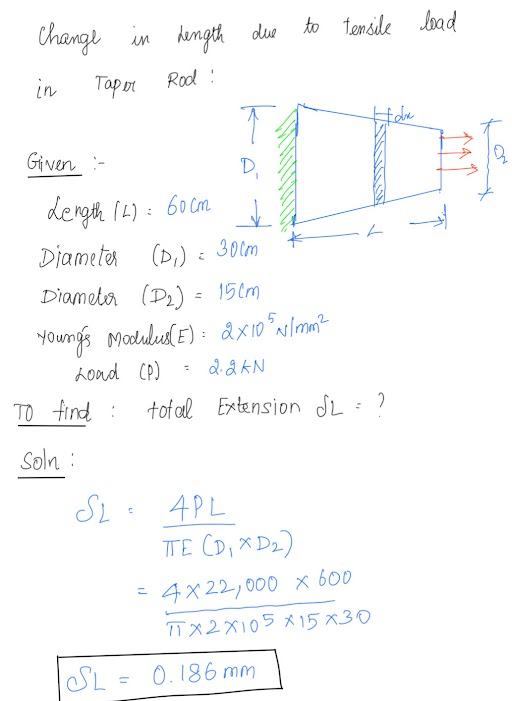 Change in length due to tensile load
in Taper Rod :
dx
D₁
D₂
L
Given :-
Length (L) = 60cm
Diameter (D₁) = 30cm
Diameter (D₂) = 15cm
Young's Modulus(E) = 2×10⁵ N/mm²
Load (P) = 2.2kN
To find : total Extension δL = ?
Soln :
δL = 4PL
πE (D₁ × D₂)
= 4×22,000 ×600
π×2×10⁵ ×15×30
δL = 0.186 mm